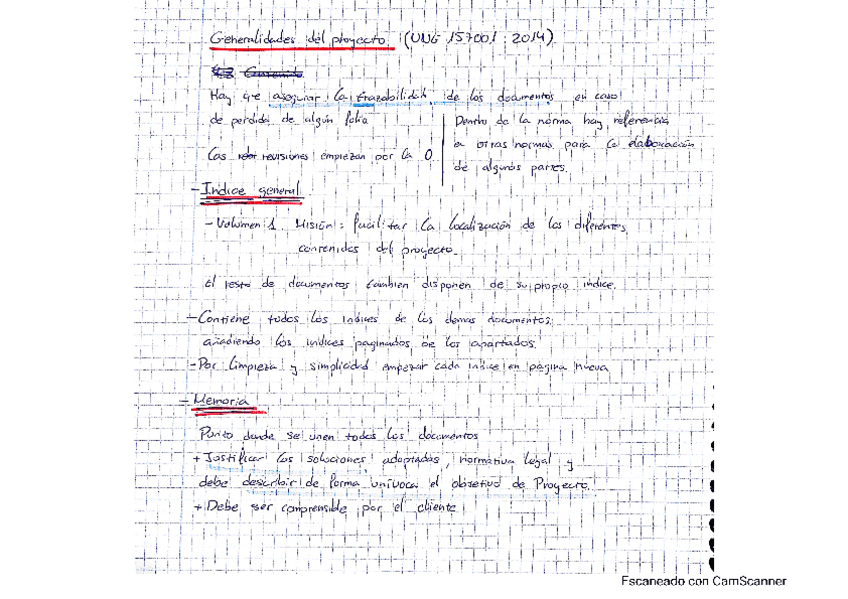 Generalidades del proyecto (UNE 157001 : 2014)
Contenido
Hay que asegurar la trazabilidad de los documentos en caso
de perdida de algún folio
Las revisiones empiezan por la 0.
Dentro de la norma hay referencia
a otras normas para la elaboración
de algunas partes.
- Indice general
- Volumen 1. Misión: facilitar la localización de los diferentes
contenidos del proyecto.
El resto de documentos tambien disponen de su propio indice.
- Contiene todos los indices de los demas documentos,
añadiendo los indices paginados de los apartados.
- Por limpieza y simplicidad empezar cada indice en pagina nueva
- Memoria
Punto donde se unen todos los documentos
+ Justificar las soluciones adoptadas, normativa legal y
debe describir de forma univoca el objetivo de Proyecto.
+ Debe ser comprensible por el cliente
Escaneado con CamScanner